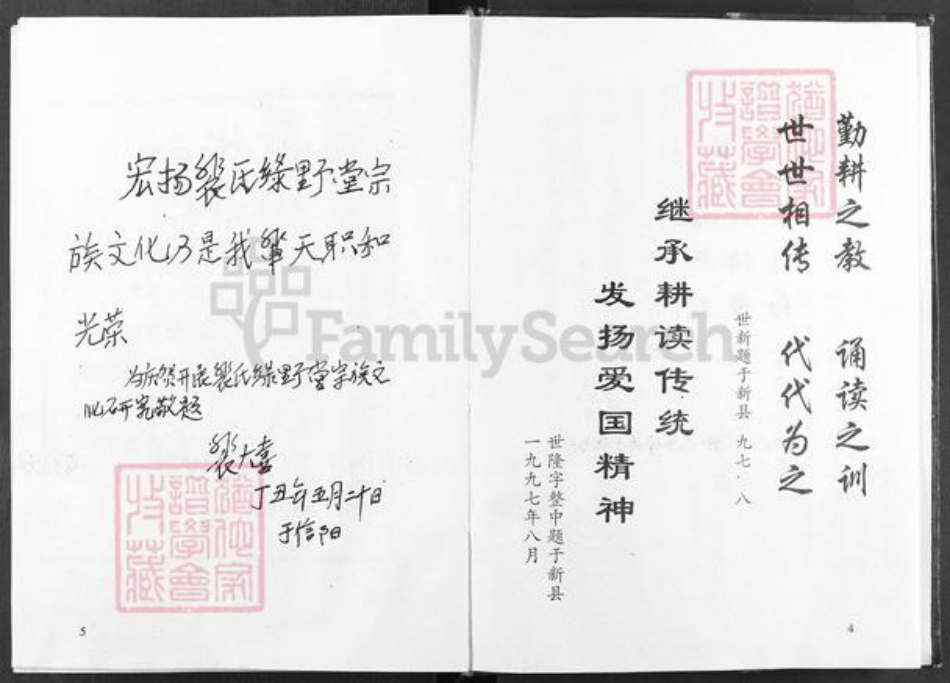 勤耕之教 诵读之训
世世相传 代代为之
世新题于新县 九七.八
继承耕读传统
发扬爱国精神
世隆字整中题于新县
一九九七年八月
4
宏扬裴氏绿野堂宗
族文化乃是我辈天职和
光荣
为庆贺开展裴氏绿野堂宗族文
化研究敬题
裴大喜
丁丑年五月二十日
于信阳
5
FamilySearch
譜學會
收藏
譜學會
收藏